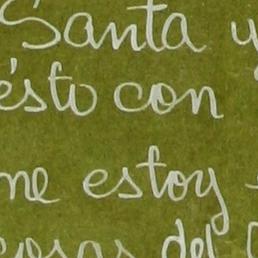 Santa y
ésto con
me estoy
cosas del